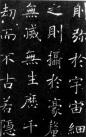 則彌於宇宙細
之則攝於豪釐
無滅無生歷千
劫而不古若隱